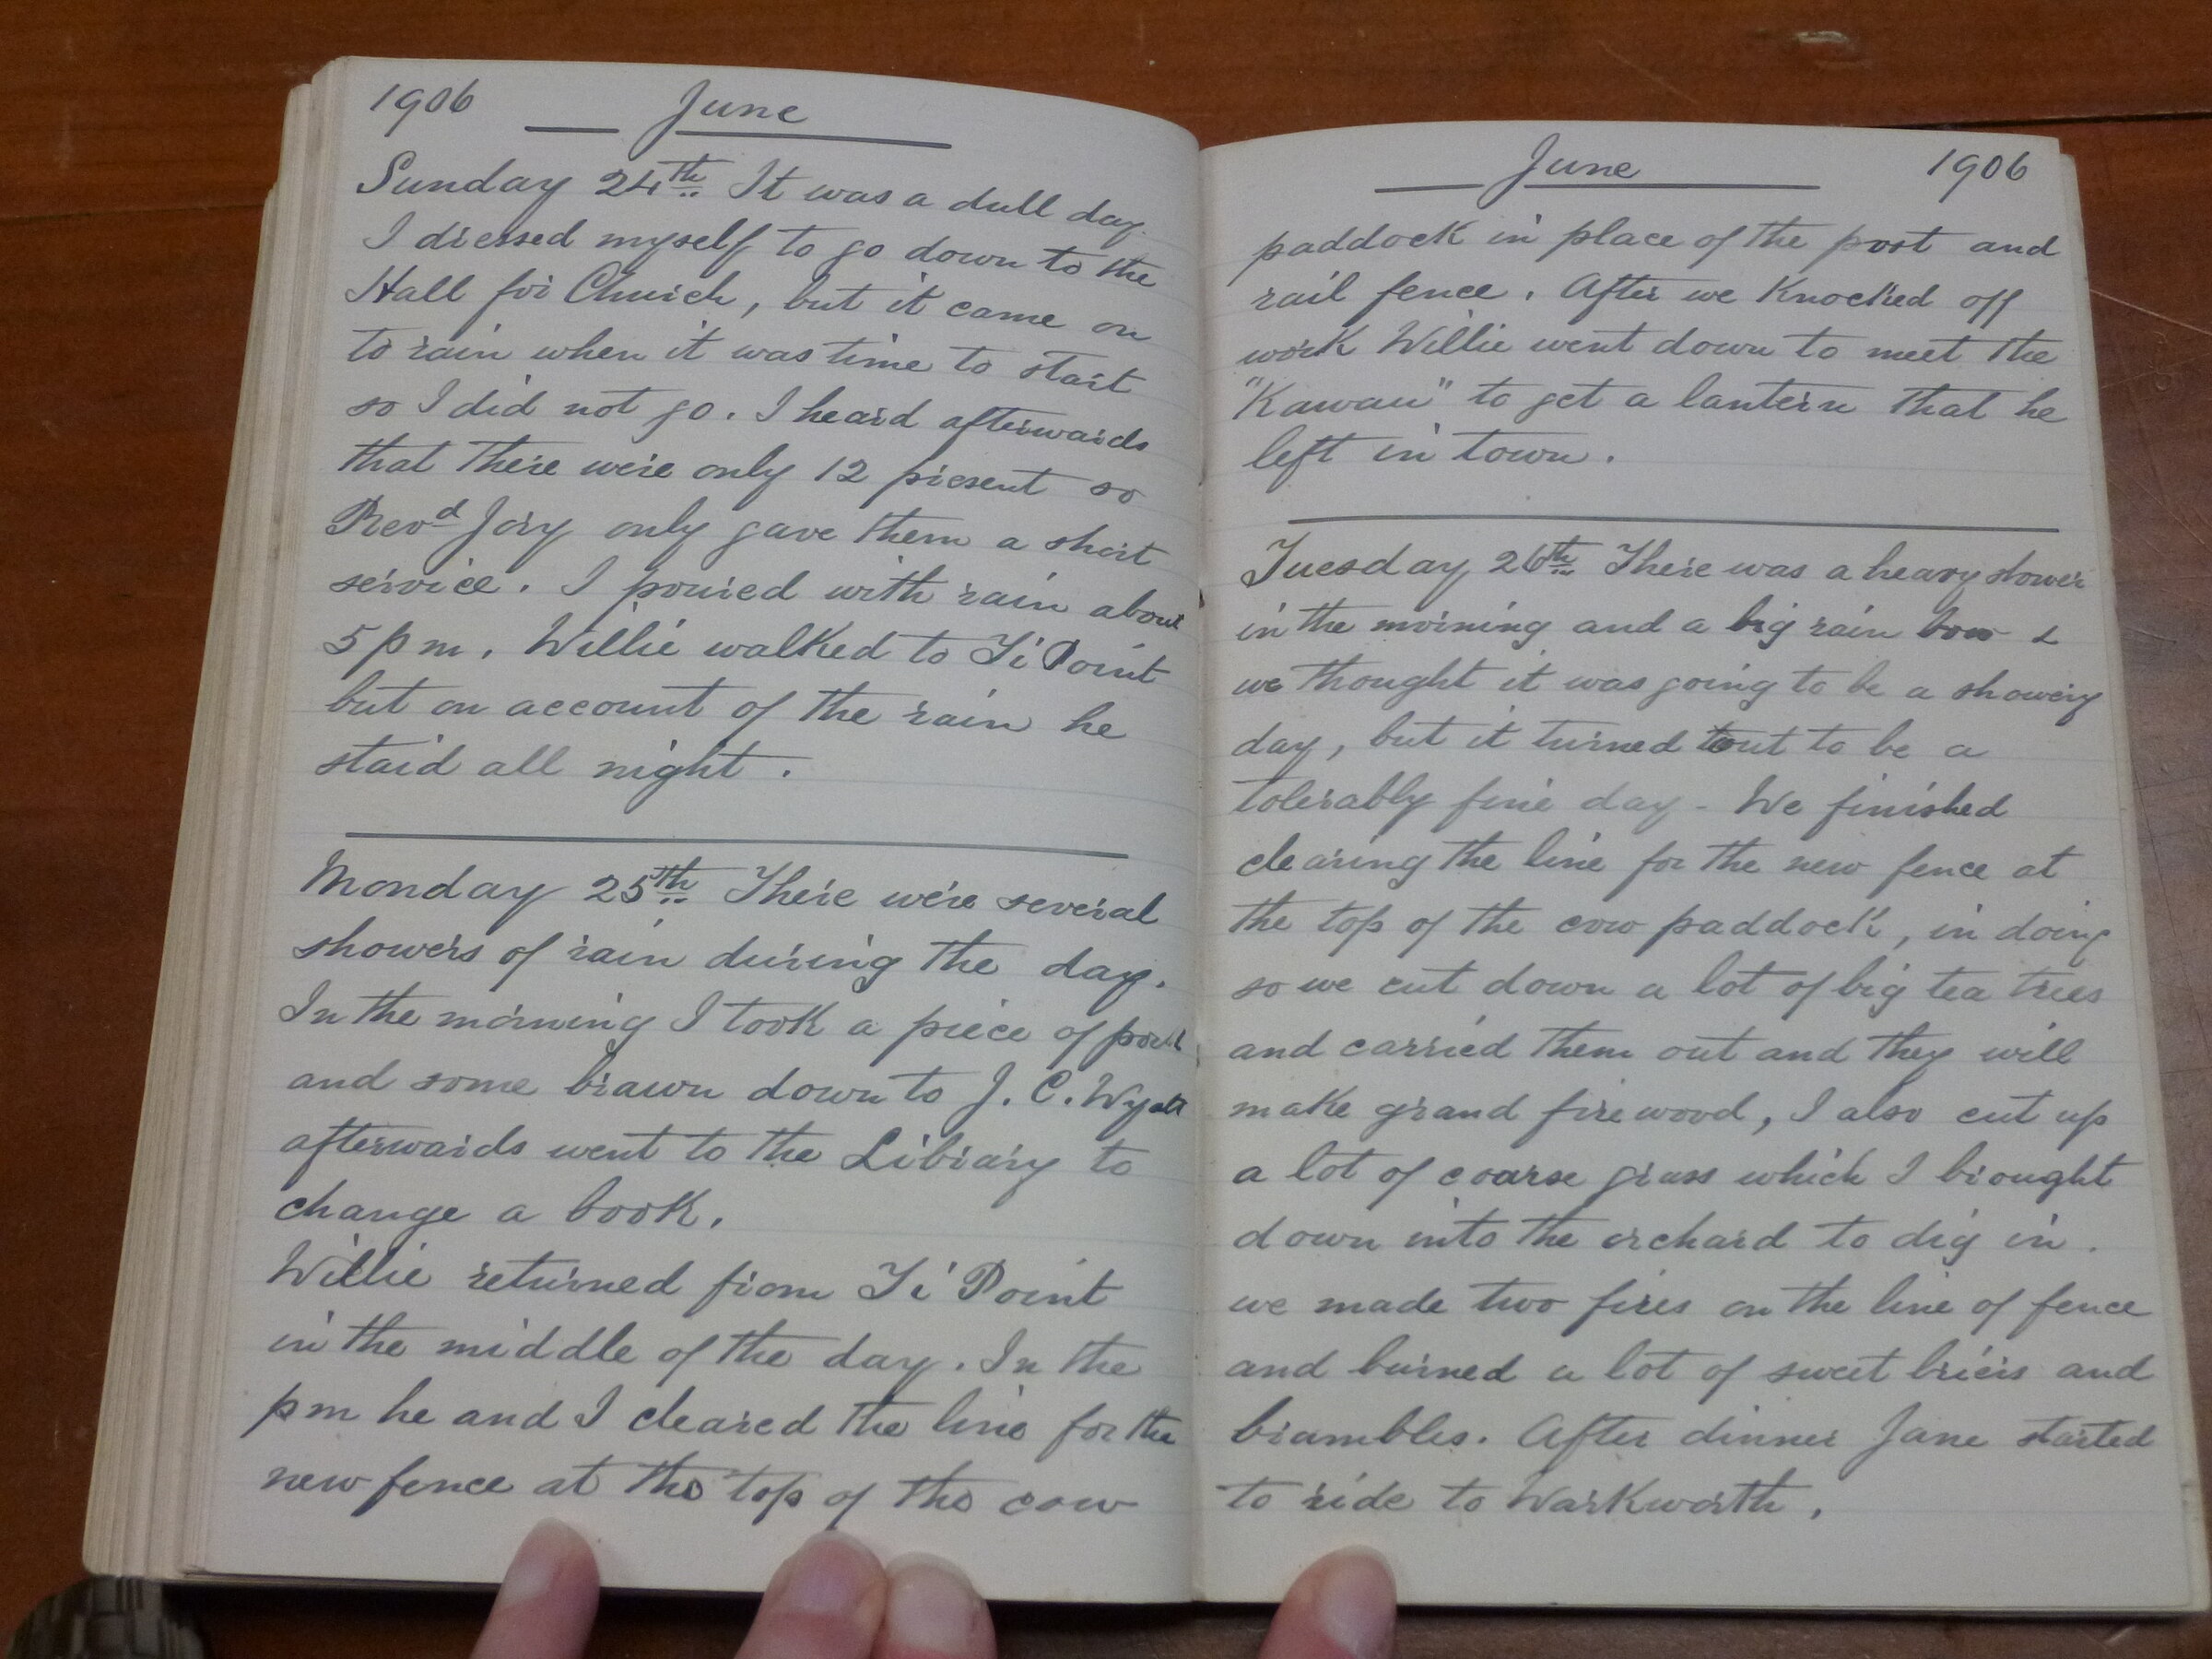 1906 June
Sunday 24th It was a dull day.
I dressed myself to go down to the
Hall for Church, but it came on
to rain when it was time to start
so I did not go. I heard afterwards
that there were only 12 present so
Revd Jory only gave them a short
service. I poured with rain about
5 pm. Willie walked to Ti Point
but on account of the rain he
staid all night.
Monday 25th There were several
showers of rain during the day.
In the morning I took a piece of pork
and some brawn down to J. C. Wyatt
afterwards went to the Library to
change a book.
Willie returned from Ti Point
in the middle of the day. In the
pm he and I cleared the line for the
new fence at the top of the cow
June 1906
paddock in place of the post and
rail fence. After we Knocked off
work Willie went down to meet the
"Kawau" to get a lantern that he
left in town.
Tuesday 26th There was a heavy shower
in the morning and a big rain bow &
we thought it was going to be a showery
day, but it turned tout to be a
tolerably fine day - We finished
clearing the line for the new fence at
the top of the cow paddock, in doing
so we cut down a lot of big tea trees
and carried them out and they will
make grand fire wood, I also cut up
a lot of coarse grass which I brought
down into the orchard to dig in.
we made two fires on the line of fence
and burned a lot of sweet briers and
brambles. After dinner Jane started
to ride to Warkworth.